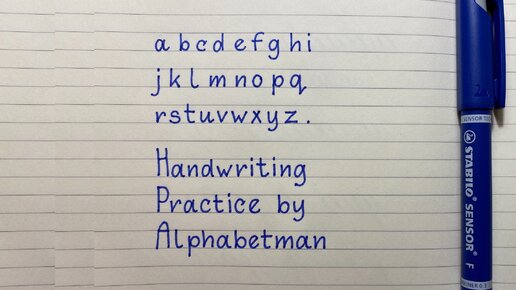 a b c d e f g h i
j k l m n o p q
r s t u v w x y z .
Handwriting
Practice by
Alphabetman
STABILO SENSOR F